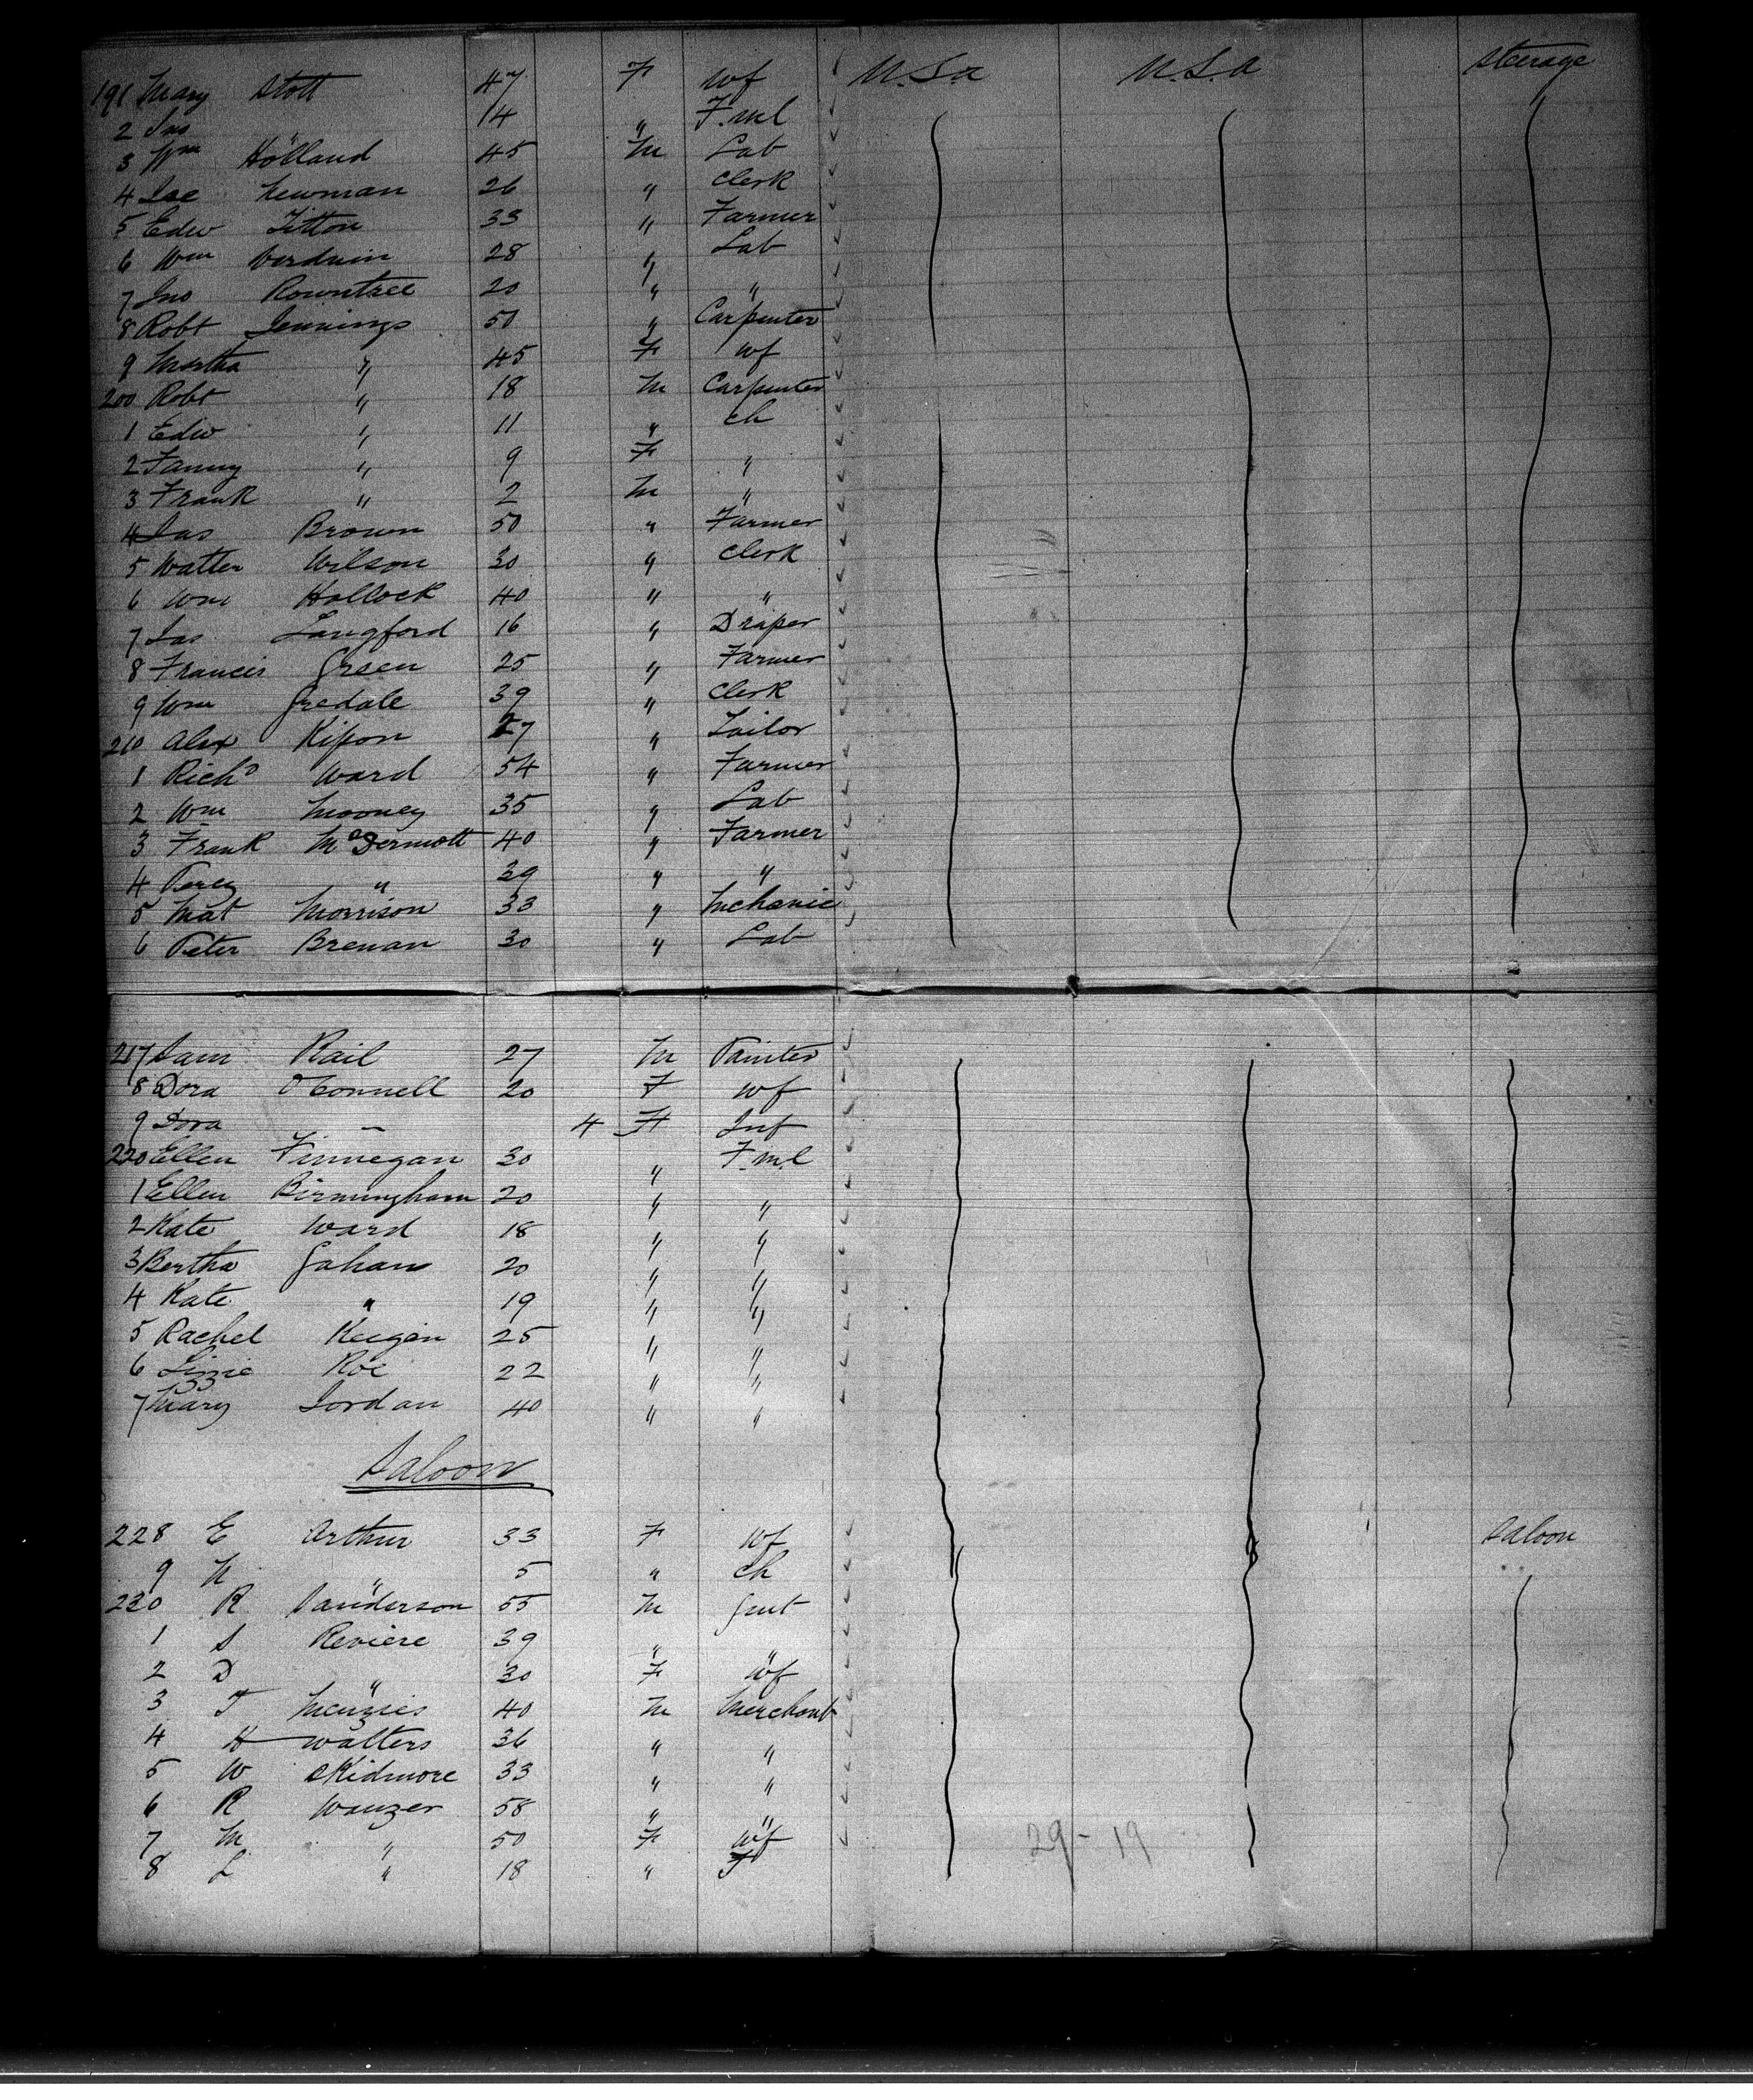 191 Mary Stott 47 F wf U.S.a U.S.a Steerage
2 Jno " 14 " F.ml
3 Wm Holland 45 M Lab
4 Newman 26 " Clerk
5 Edw Titton 33 " Farmer
6 Wm 28 " Lab
7 Jno Rowntree 20 " "
8 Robt Jennings 50 " Carpenter
9 Martha " 45 F wf
200 Robt " 18 M Carpenter
1 Edw " 11 " ch
2 Fanny " 9 F "
3 Frank " 2 M "
4 Jas Brown 50 " Farmer
5 Walter Wilson 30 " Clerk
6 Wm Hollock 40 " "
7 Jas Langford 16 " Draper
8 Francis Green 25 " Farmer
9 Wm Gredale 39 " Clerk
210 Alex 27 " Tailor
1 Richd Ward 54 " Farmer
2 Wm Mooney 35 " Lab
3 Frank McDermott 40 " Farmer
4 Percy " 39 " "
5 Mat Morrison 33 " Mchanic
6 Peter Brenan 30 " Lab
217 Sam Rail 27 M Painter
8 Dora OConnell 20 F wf
9 Dora – 4 F Inf
220 Ellen Finnegan 30 " F.ml
1 Ellen Birmingham 20 " "
2 Kate Ward 18 " "
3 Bertha Gahan 20 " "
4 Kate " 19 " "
5 Rachel Keegan 25 " "
6 Lizzie Roe 22 " "
7 Mary Jordan 40 " "
Saloon
228 E Arthur 33 F wf Saloon
9 N " 5 " ch
230 R Sanderson 55 M Gent
1 S Reviere 39 " "
2 D " 30 F wf
3 T Menzies 40 M Merchant
4 H Walters 36 " "
5 W Skidmore 33 " "
6 R Wanzer 58 " "
7 M " 50 F wf
8 L " 18 " F
29 - 19